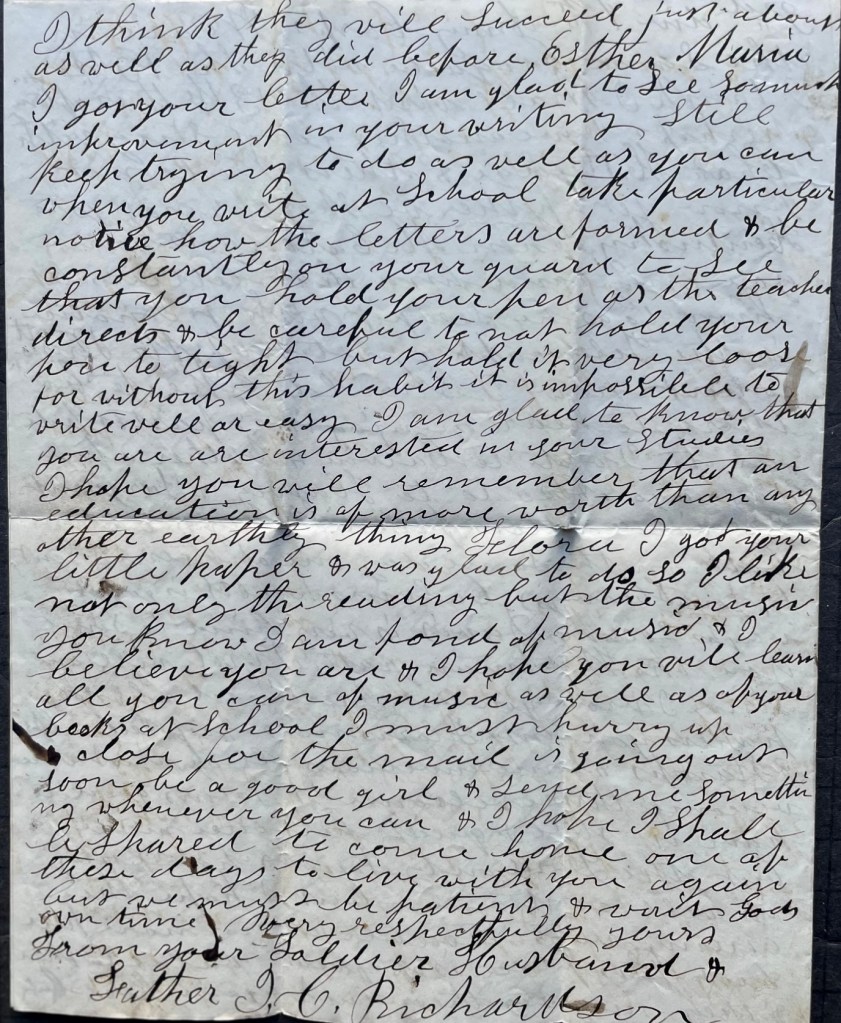 I think they will succeed just about
as well as they did before Esther Maria
I got your letter I am glad to see so much
improvement in your writing Still
keep trying to do as well as you can
when you write at School take particular
notice how the letters are formed & be
constantly on your guard to see
that you hold your pen as the teacher
directs & be careful to not hold your
pen to tight but hold it very loose
for without this habit it is impossible to
write well or easy I am glad to know that
you are are interested in your Studies
I hope you will remember that an
education is of more worth than any
other earthly thing Flora I got your
little paper & was glad to do so I like
not only the reading but the music
you know I am fond of music & I
believe you are & I hope you will learn
all you can of music as well as of your
books at School I must hurry up
& close for the mail is going out
soon be a good girl & send me somethi
ng whenever you can & I hope I shall
be spared to come home one of
these days to live with you again
but we must be patient & wait Gods
own time Very respectfully yours
From your Soldier Husband &
Father I. C. Richardson